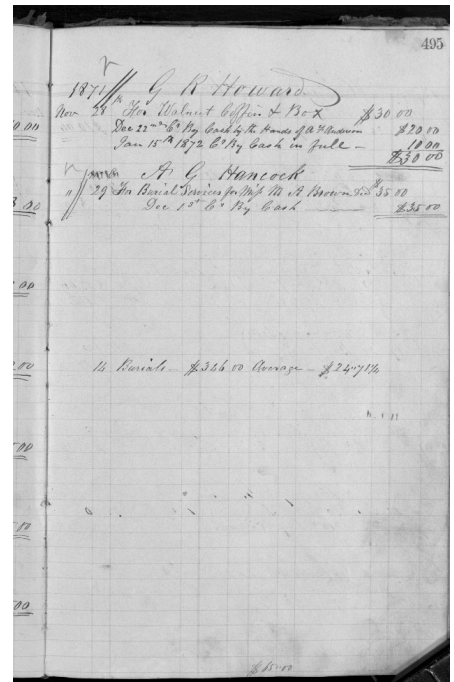 495
1871 G R Howard
Nov 28 For Walnut Coffin & Box $30 00
Dec 22nd Cr By Cash by the Hands of A Anderson $20 00
Jan 15th 1872 Cr By Cash in full – 10 00
$30 00
A G Hancock
" 29 For Burial Services for M A Brown $35 00
Dec 1st Cr By Cash $35 00
14 Burials – $346 00 Average – $24.71¼
$65.00